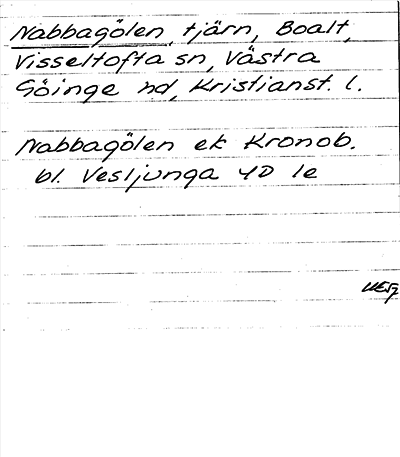 Nabbagölen, tjärn, Boalt,
Visseltofta sn, Västra
Göinge hd, Kristianst. l.
Nabbagölen ek Kronob.
bl. Vesljunga 4D 1e